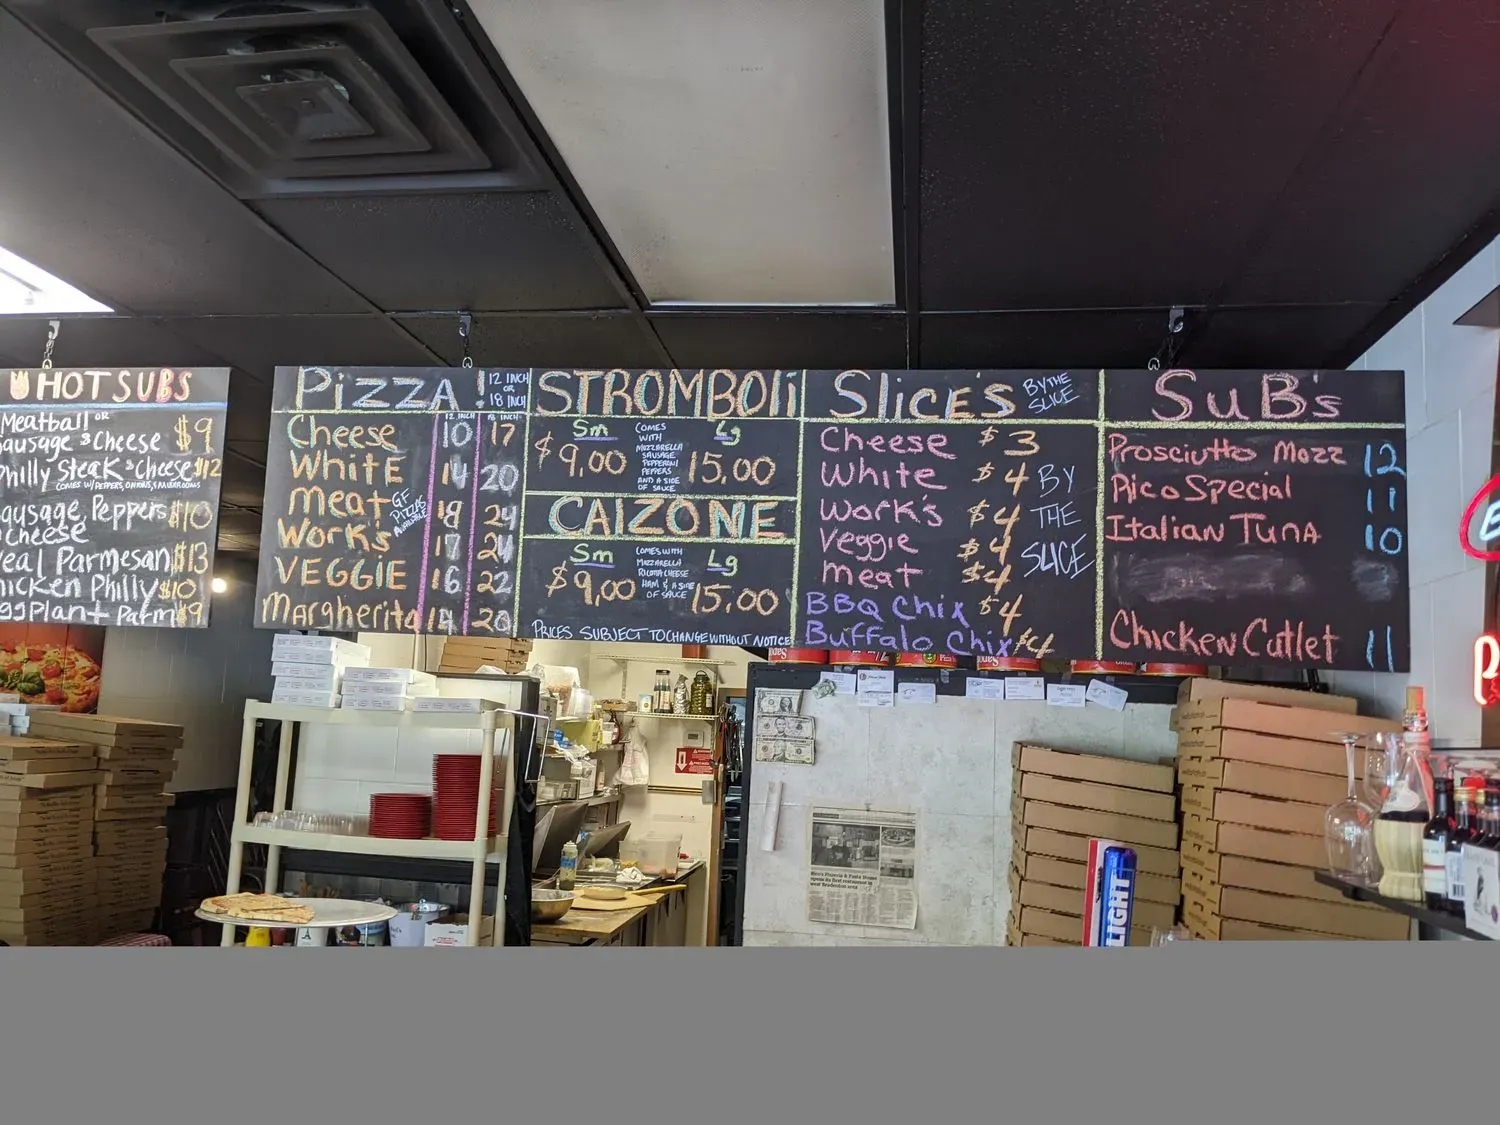 HOT SUBS
Meatball or
ausage & Cheese $9
Philly Steak & Cheese $12
COMES W/ PEPPERS, ONIONS, & MUSHROOMS
ausage, Peppers $10
Cheese
eal Parmesan $13
hicken Philly $10
ggplant Parm $9
Pizza! 12 INCH
OR
18 INCH
12 INCH 18 INCH
Cheese 10 17
White 14 20
Meat 18 24
GF
PIZZAS
AVAILABLE
Work's 17 24
VEGGIE 16 22
Margherita 14 20
STROMBOLi
Sm Lg
$9.00 15.00
COMES
WITH
MOZZARELLA
SAUSAGE
PEPPERONI
PEPPERS
AND A SIDE
OF SAUCE
CAlZONE
Sm Lg
$9.00 15.00
COMES WITH
MOZZARELLA
RICOTTA CHEESE
HAM & A SIDE
OF SAUCE
PRICES SUBJECT TO CHANGE WITHOUT NOTICE
Slice's BY THE
SLICE
Cheese $3
White $4
Work's $4
Veggie $4
Meat $4
BY
THE
SLICE
BBQ Chix $4
Buffalo Chix $4
SuB's
Prosciutto Mozz 12
Rico Special 11
Italian Tuna 10
Chicken Cutlet 11
Rico's Pizzeria & Pasta House
opens its first restaurant in
west Bradenton area
LIGHT